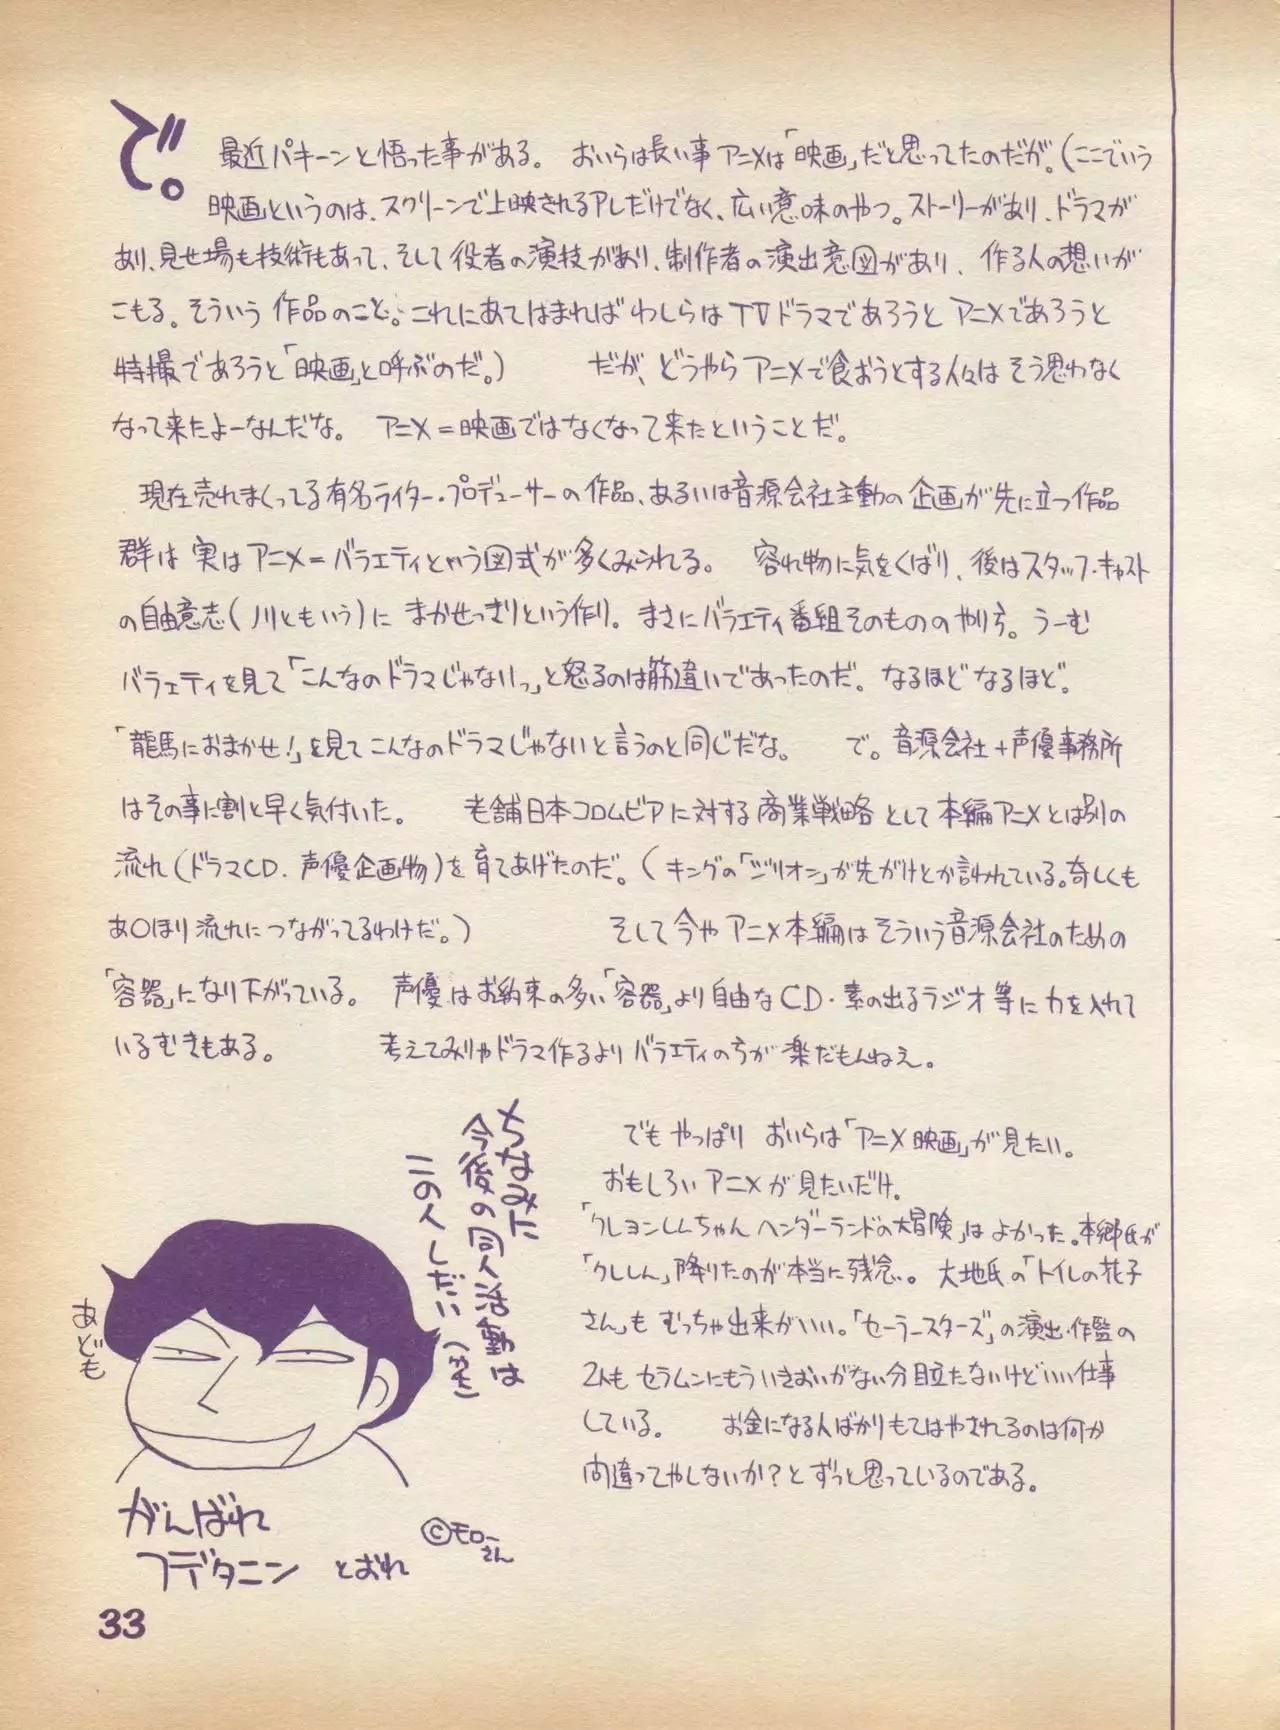 で。
最近パキーンと悟った事がある。 おいらは長い事アニメは「映画」だと思ってたのだが。(ここでいう
映画というのは、スクリーンで上映されるアレだけでなく、広い意味のやつ。ストーリーがあり、ドラマが
あり、見せ場も技術もあって、そして役者の演技があり、制作者の演出意図があり、作る人の想いが
こもる。そういう作品のこと。これにあてはまればわしらはTVドラマであろうとアニメであろうと
特撮であろうと「映画」と呼ぶのだ。) だが、どうやらアニメで食おうとする人々はそう思わなく
なって来たよーなんだな。 アニメ=映画ではなくなって来たということだ。
現在売れまくってる有名ライター・プロデューサーの作品、あるいは音源会社主動の企画が先に立つ作品
群は実はアニメ=バラエティという図式が多くみられる。 容れ物に気をくばり、後はスタッフ・キャスト
の自由意志(ノリともいう)にまかせっきりという作り。まさにバラエティ番組そのもののやり方。うーむ
バラエティを見て「こんなのドラマじゃないっ」と怒るのは筋違いであったのだ。なるほどなるほど。
「龍馬におまかせ!」を見てこんなのドラマじゃないと言うのと同じだな。 で。音源会社+声優事務所
はその事に割と早く気付いた。 老舗日本コロムビアに対する商業戦略として本編アニメとは別の
流れ(ドラマCD・声優企画物)を育てあげたのだ。(キングの「ジリオン」が先がけとか言われている。奇しくも
あ○ほり流れにつながってるわけだ。) そして今やアニメ本編はそういう音源会社のための
「容器」になり下がっている。 声優はお約束の多い「容器」より自由なCD・素の出るラジオ等に力を入れて
いるむきもある。 考えてみりゃドラマ作るよりバラエティの方が楽だもんねえ。
でもやっぱりおいらは「アニメ映画」が見たい。
おもしろいアニメが見たいだけ。
「クレヨンしんちゃんヘンダーランドの大冒険」はよかった。本郷氏が
「クレしん」降りたのが本当に残念。 大地氏の「トイレの花子
さん」もむっちゃ出来がいい。「セーラースターズ」の演出・作監の
2人もセラムンにもういきおいがない分目立たないけどいい仕事
している。 お金になる人ばかりもてはやされるのは何か
間違ってやしないか?とずっと思っているのである。
ちなみに
今後の同人活動は
この人しだい(笑)
あども
がんばれ
フデタニン とおれ
©モローさん
33